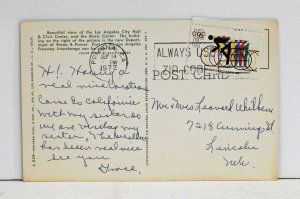 Beautiful view of the Los Angeles City Hall
& Civic Center, and the Music Center. The build-
ing on the right of the picture is the new Depart-
ment of Water & Power. Four-level Los Angeles
Freeway interchange can be
PM
1972
ALWAYS USE
ZIP CODE
POST CARD
Hi. Having a
real nice vacation
Came to California
with my sister so
we are visiting my
sister. The weather
has been real nice
See you
Grace
Mr & Mrs Leonard
7218 Cuming St
Lincoln
Neb.